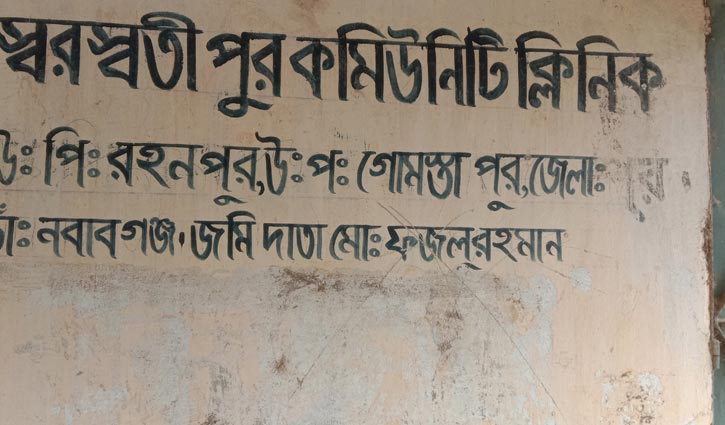 স্বরস্বতী পুর কমিউনিটি ক্লিনিক
উঃ পিঃ রহনপুর,উঃপঃ গোমস্তা পুর,জেলাঃ
নবাব গঞ্জ. জমি দাতা মোঃ ফজলুরহমান